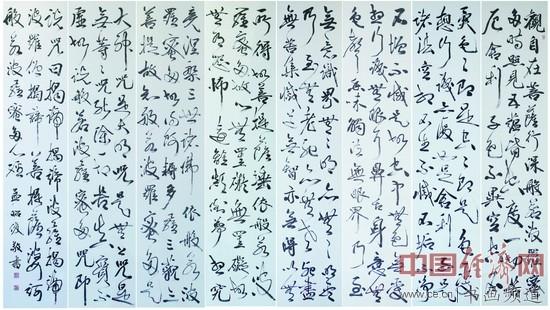 觀自在菩薩行深般若波羅蜜
多時照見五蘊皆空度一切苦
厄舍利子色不異空空不異
色色即是空空即是色受
想行識亦復如是舍利子是
諸法空相不生不滅不垢不淨
不增不減是故空中無色無受
想行識無眼耳鼻舌身意無
色聲香味觸法無眼界乃至
無意識界無無明亦無無明盡
乃至無老死亦無老死盡
無苦集滅道無智亦無得以無
所得故菩提薩埵依般若波
羅蜜多故心無罣礙無罣礙故
無有恐怖遠離顛倒夢想究
竟涅槃三世諸佛依般若波
羅蜜多故得阿耨多羅三藐三
菩提故知般若波羅蜜多是
大神咒是大明咒是無上咒是
無等等咒能除一切苦真實不
虛故說般若波羅蜜多咒即
說咒曰揭諦揭諦波羅揭諦
波羅僧揭諦菩提薩婆訶
般若波羅蜜多心經 敬書
中国经济网
www.ce.cn 书画频道